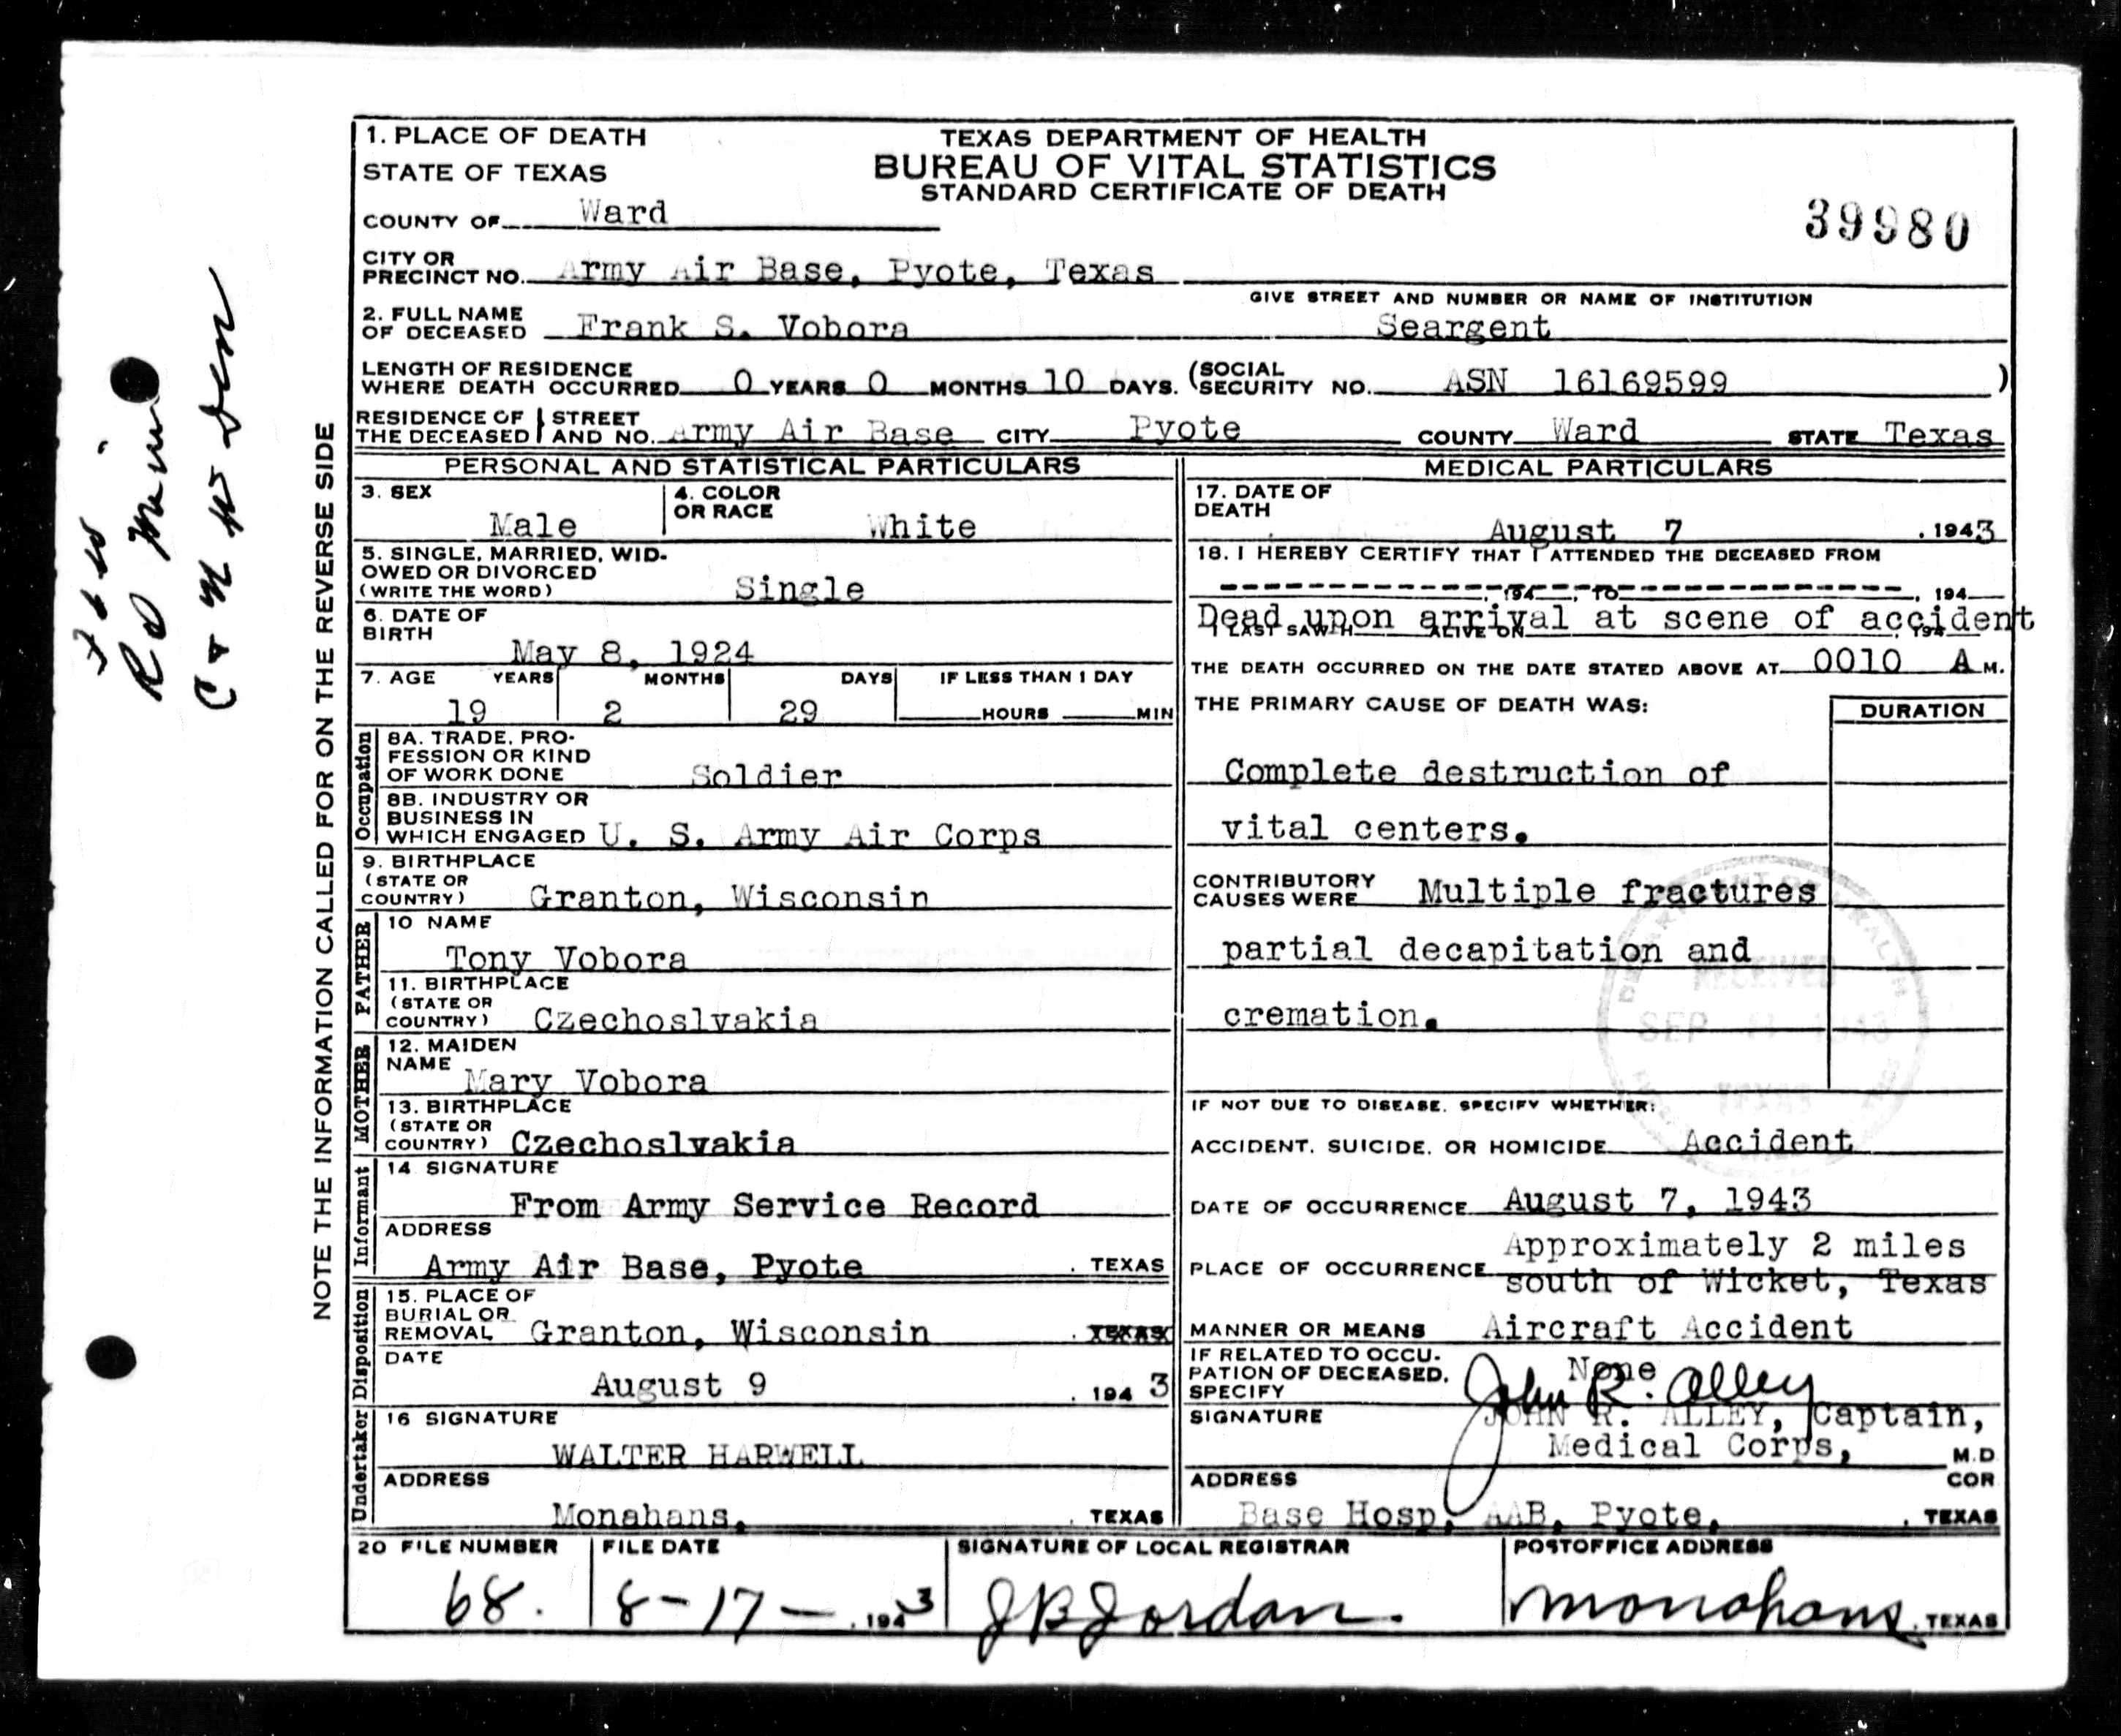 1. PLACE OF DEATH
STATE OF TEXAS
COUNTY OF Ward
TEXAS DEPARTMENT OF HEALTH
BUREAU OF VITAL STATISTICS
STANDARD CERTIFICATE OF DEATH
39980
CITY OR PRECINCT NO. Army Air Base, Pyote, Texas
GIVE STREET AND NUMBER OR NAME OF INSTITUTION
2. FULL NAME OF DECEASED Frank S. Vobora Seargent
LENGTH OF RESIDENCE WHERE DEATH OCCURRED 0 YEARS 0 MONTHS 10 DAYS. (SOCIAL SECURITY NO. ASN 16169599 )
RESIDENCE OF THE DECEASED STREET AND NO. Army Air Base CITY Pyote COUNTY Ward STATE Texas
PERSONAL AND STATISTICAL PARTICULARS
3. SEX Male
4. COLOR OR RACE White
5. SINGLE, MARRIED, WIDOWED OR DIVORCED (WRITE THE WORD) Single
6. DATE OF BIRTH May 8, 1924
7. AGE YEARS MONTHS DAYS IF LESS THAN 1 DAY
19 2 29 HOURS MIN
Occupation
8A. TRADE, PROFESSION OR KIND OF WORK DONE Soldier
8B. INDUSTRY OR BUSINESS IN WHICH ENGAGED U. S. Army Air Corps
9. BIRTHPLACE (STATE OR COUNTRY) Granton, Wisconsin
FATHER
10 NAME Tony Vobora
11. BIRTHPLACE (STATE OR COUNTRY) Czechoslvakia
MOTHER
12. MAIDEN NAME Mary Vobora
13. BIRTHPLACE (STATE OR COUNTRY) Czechoslvakia
Informant
14 SIGNATURE From Army Service Record
ADDRESS Army Air Base, Pyote , TEXAS
Disposition
15. PLACE OF BURIAL OR REMOVAL Granton, Wisconsin , TEXAS
DATE August 9 , 1943
Undertaker
16 SIGNATURE WALTER HARWELL
ADDRESS Monahans, , TEXAS
MEDICAL PARTICULARS
17. DATE OF DEATH August 7 , 1943
18. I HEREBY CERTIFY THAT I ATTENDED THE DECEASED FROM
, 194 , TO , 194
I LAST SAW H ALIVE ON 194
Dead upon arrival at scene of accident
THE DEATH OCCURRED ON THE DATE STATED ABOVE AT 0010 A M.
THE PRIMARY CAUSE OF DEATH WAS: DURATION
Complete destruction of
vital centers.
CONTRIBUTORY CAUSES WERE Multiple fractures
partial decapitation and
cremation.
RECEIVED
SEP 11 1943
TEXAS
IF NOT DUE TO DISEASE, SPECIFY WHETHER:
ACCIDENT, SUICIDE, OR HOMICIDE Accident
DATE OF OCCURRENCE August 7, 1943
PLACE OF OCCURRENCE Approximately 2 miles
south of Wicket, Texas
MANNER OR MEANS Aircraft Accident
IF RELATED TO OCCUPATION OF DECEASED, SPECIFY None
John R. Alley
SIGNATURE JOHN R. ALLEY, Captain,
Medical Corps, M.D
COR
ADDRESS Base Hosp, AAB, Pyote, , TEXAS
20 FILE NUMBER 68.
FILE DATE 8-17- , 1943
SIGNATURE OF LOCAL REGISTRAR J B Jordan.
POSTOFFICE ADDRESS Monahans, TEXAS
NOTE THE INFORMATION CALLED FOR ON THE REVERSE SIDE